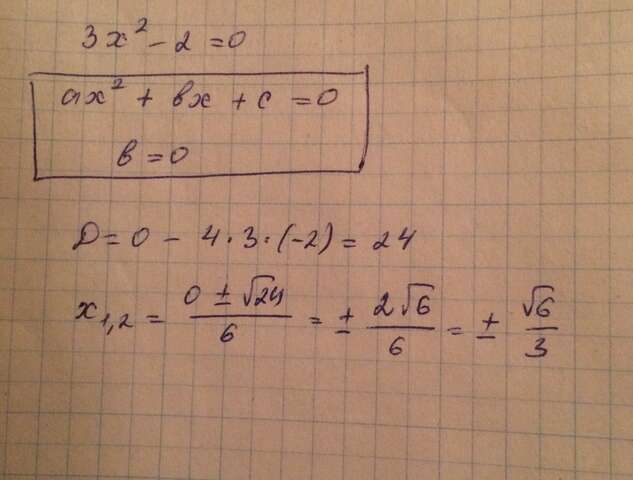 3x² - 2 = 0
ax² + bx + c = 0
b = 0
D = 0 - 4·3·(-2) = 24
x₁,₂ = (0 ± √24)/6 = ± (2√6)/6 = ± √6/3